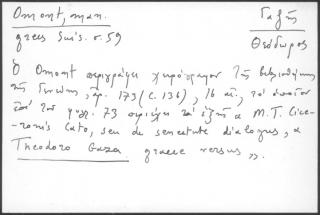 Omont, man.
grecs Suis. σ. 59
Γαζῆς
Θεόδωρος
Ὁ Omont περιγράφει χειρόγραφον τῆς βιβλιοθήκης
τῆς Γενεύης, ἀρ. 173 (C. 136), 16 αἰ., τὸ ὁποῖον
ἀπὸ τοῦ φυλλ. 73 περιέχει τὰ ἑξῆς « M. T. Cice-
ronis Cato, seu de senectute dialogus, a
Theodoro Gaza graece versus ».